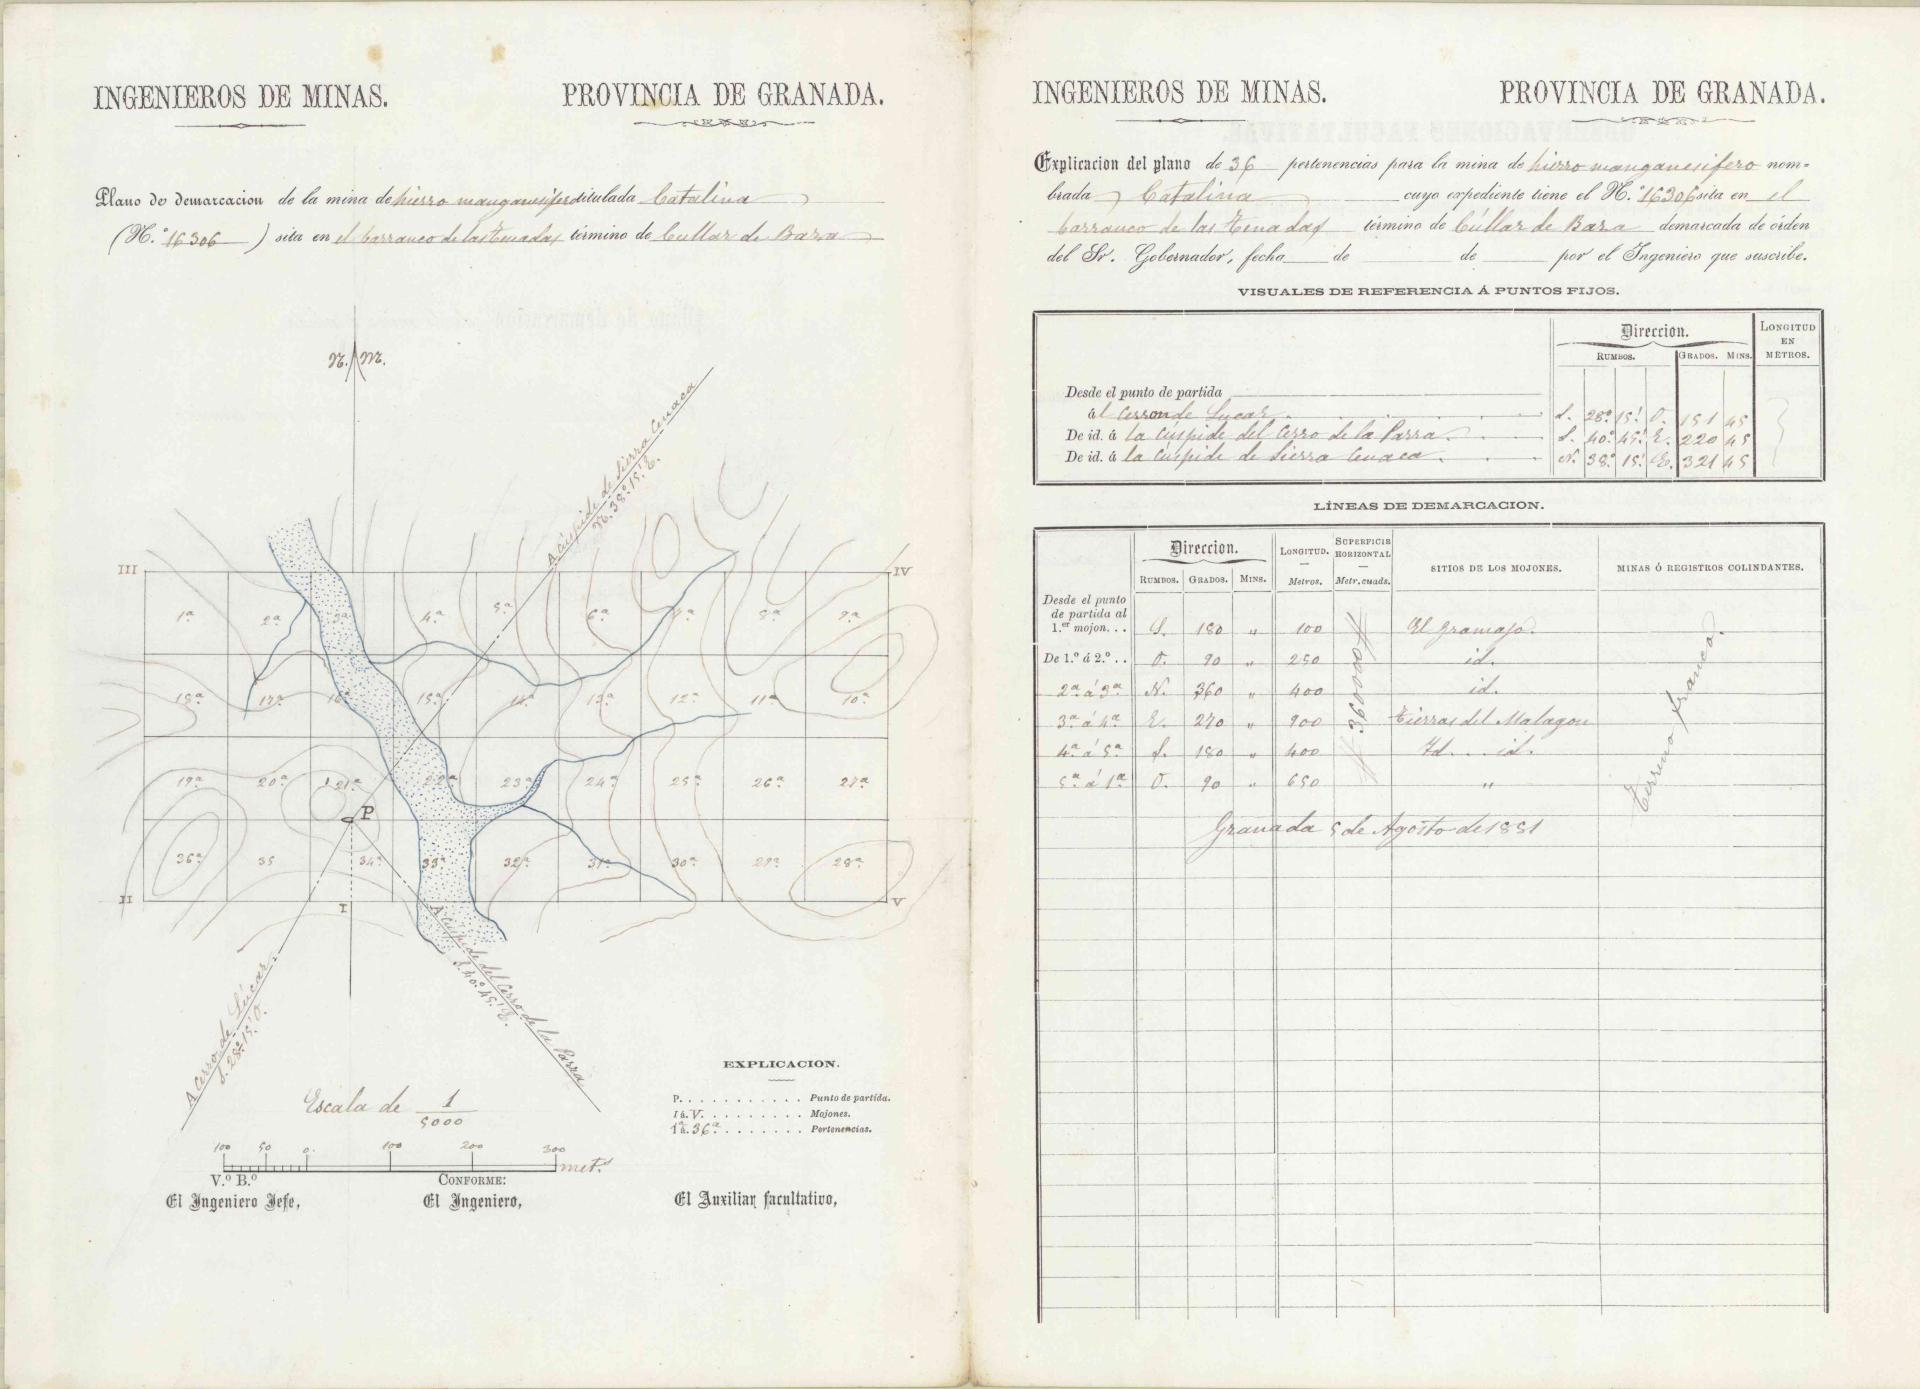 INGENIEROS DE MINAS. PROVINCIA DE GRANADA.
Plano de demarcacion de la mina de hierro manganesifero titulada Catalina
(N.º 16306) sita en el barranco de las Tenadas término de Cúllar de Baza
N. M.
A cúspide de Sierra Cenaca
N. 38.º 15.' E.
III IV
1.ª 2.ª 3.ª 4.ª 5.ª 6.ª 7.ª 8.ª 9.ª
18.ª 17.ª 16.ª 15.ª 14.ª 13.ª 12.ª 11.ª 10.ª
19.ª 20.ª 21.ª 22.ª 23.ª 24.ª 25.ª 26.ª 27.ª
P
36.ª 35 34.ª 33.ª 32.ª 31.ª 30.ª 29.ª 28.ª
II I V
A Cerro de Lúcar
S. 28.º 15.' O.
A cúspide del Cerro de la Parra
S. 40.º 45.' E.
Escala de 1
5000
100 50 0. 100 200 300
met.s
EXPLICACION.
P. . . . . . . . . . . . Punto de partida.
I á. V. . . . . . . . . . Mojones.
1.ª á. 36.ª . . . . . . . . Pertenencias.
V.º B.º CONFORME:
El Ingeniero Jefe, El Ingeniero, El Auxiliar facultativo,
INGENIEROS DE MINAS. PROVINCIA DE GRANADA.
Explicacion del plano de 36 pertenencias para la mina de hierro manganesifero nom-
brada Catalina cuyo expediente tiene el N.º 16306 sita en el
barranco de las Tenadas término de Cúllar de Baza demarcada de órden
del Sr. Gobernador, fecha de de por el Ingeniero que suscribe.
VISUALES DE REFERENCIA Á PUNTOS FIJOS.
Direccion. LONGITUD EN METROS.
RUMBOS. GRADOS. MINS.
Desde el punto de partida
ál Cerron de Lucar. S. 28.º 15.' O. 151 45
De id. á la cúspide del Cerro de la Parra. S. 40.º 45.' E. 220 45
De id. á la cúspide de Sierra Cenaca. N. 38.º 15.' E. 321 45
LÍNEAS DE DEMARCACION.
Direccion. LONGITUD. SUPERFICIE HORIZONTAL SITIOS DE LOS MOJONES. MINAS Ó REGISTROS COLINDANTES.
RUMBOS. GRADOS. MINS. Metros. Metr. cuads.
Desde el punto
de partida al
1.er mojon. . . S. 180 " 100 El Gramajo.
De 1.º á 2.º . . O. 90 " 250 id.
2.ª á 3.ª N. 360 " 400 id.
3.ª á 4.ª E. 270 " 900 Tierras del Malagon
4.ª á 5.ª S. 180 " 400 Id. . . id.
5.ª á 1.ª O. 90 " 650 "
360000
Terreno franco.
Granada 5 de Agosto de 1881